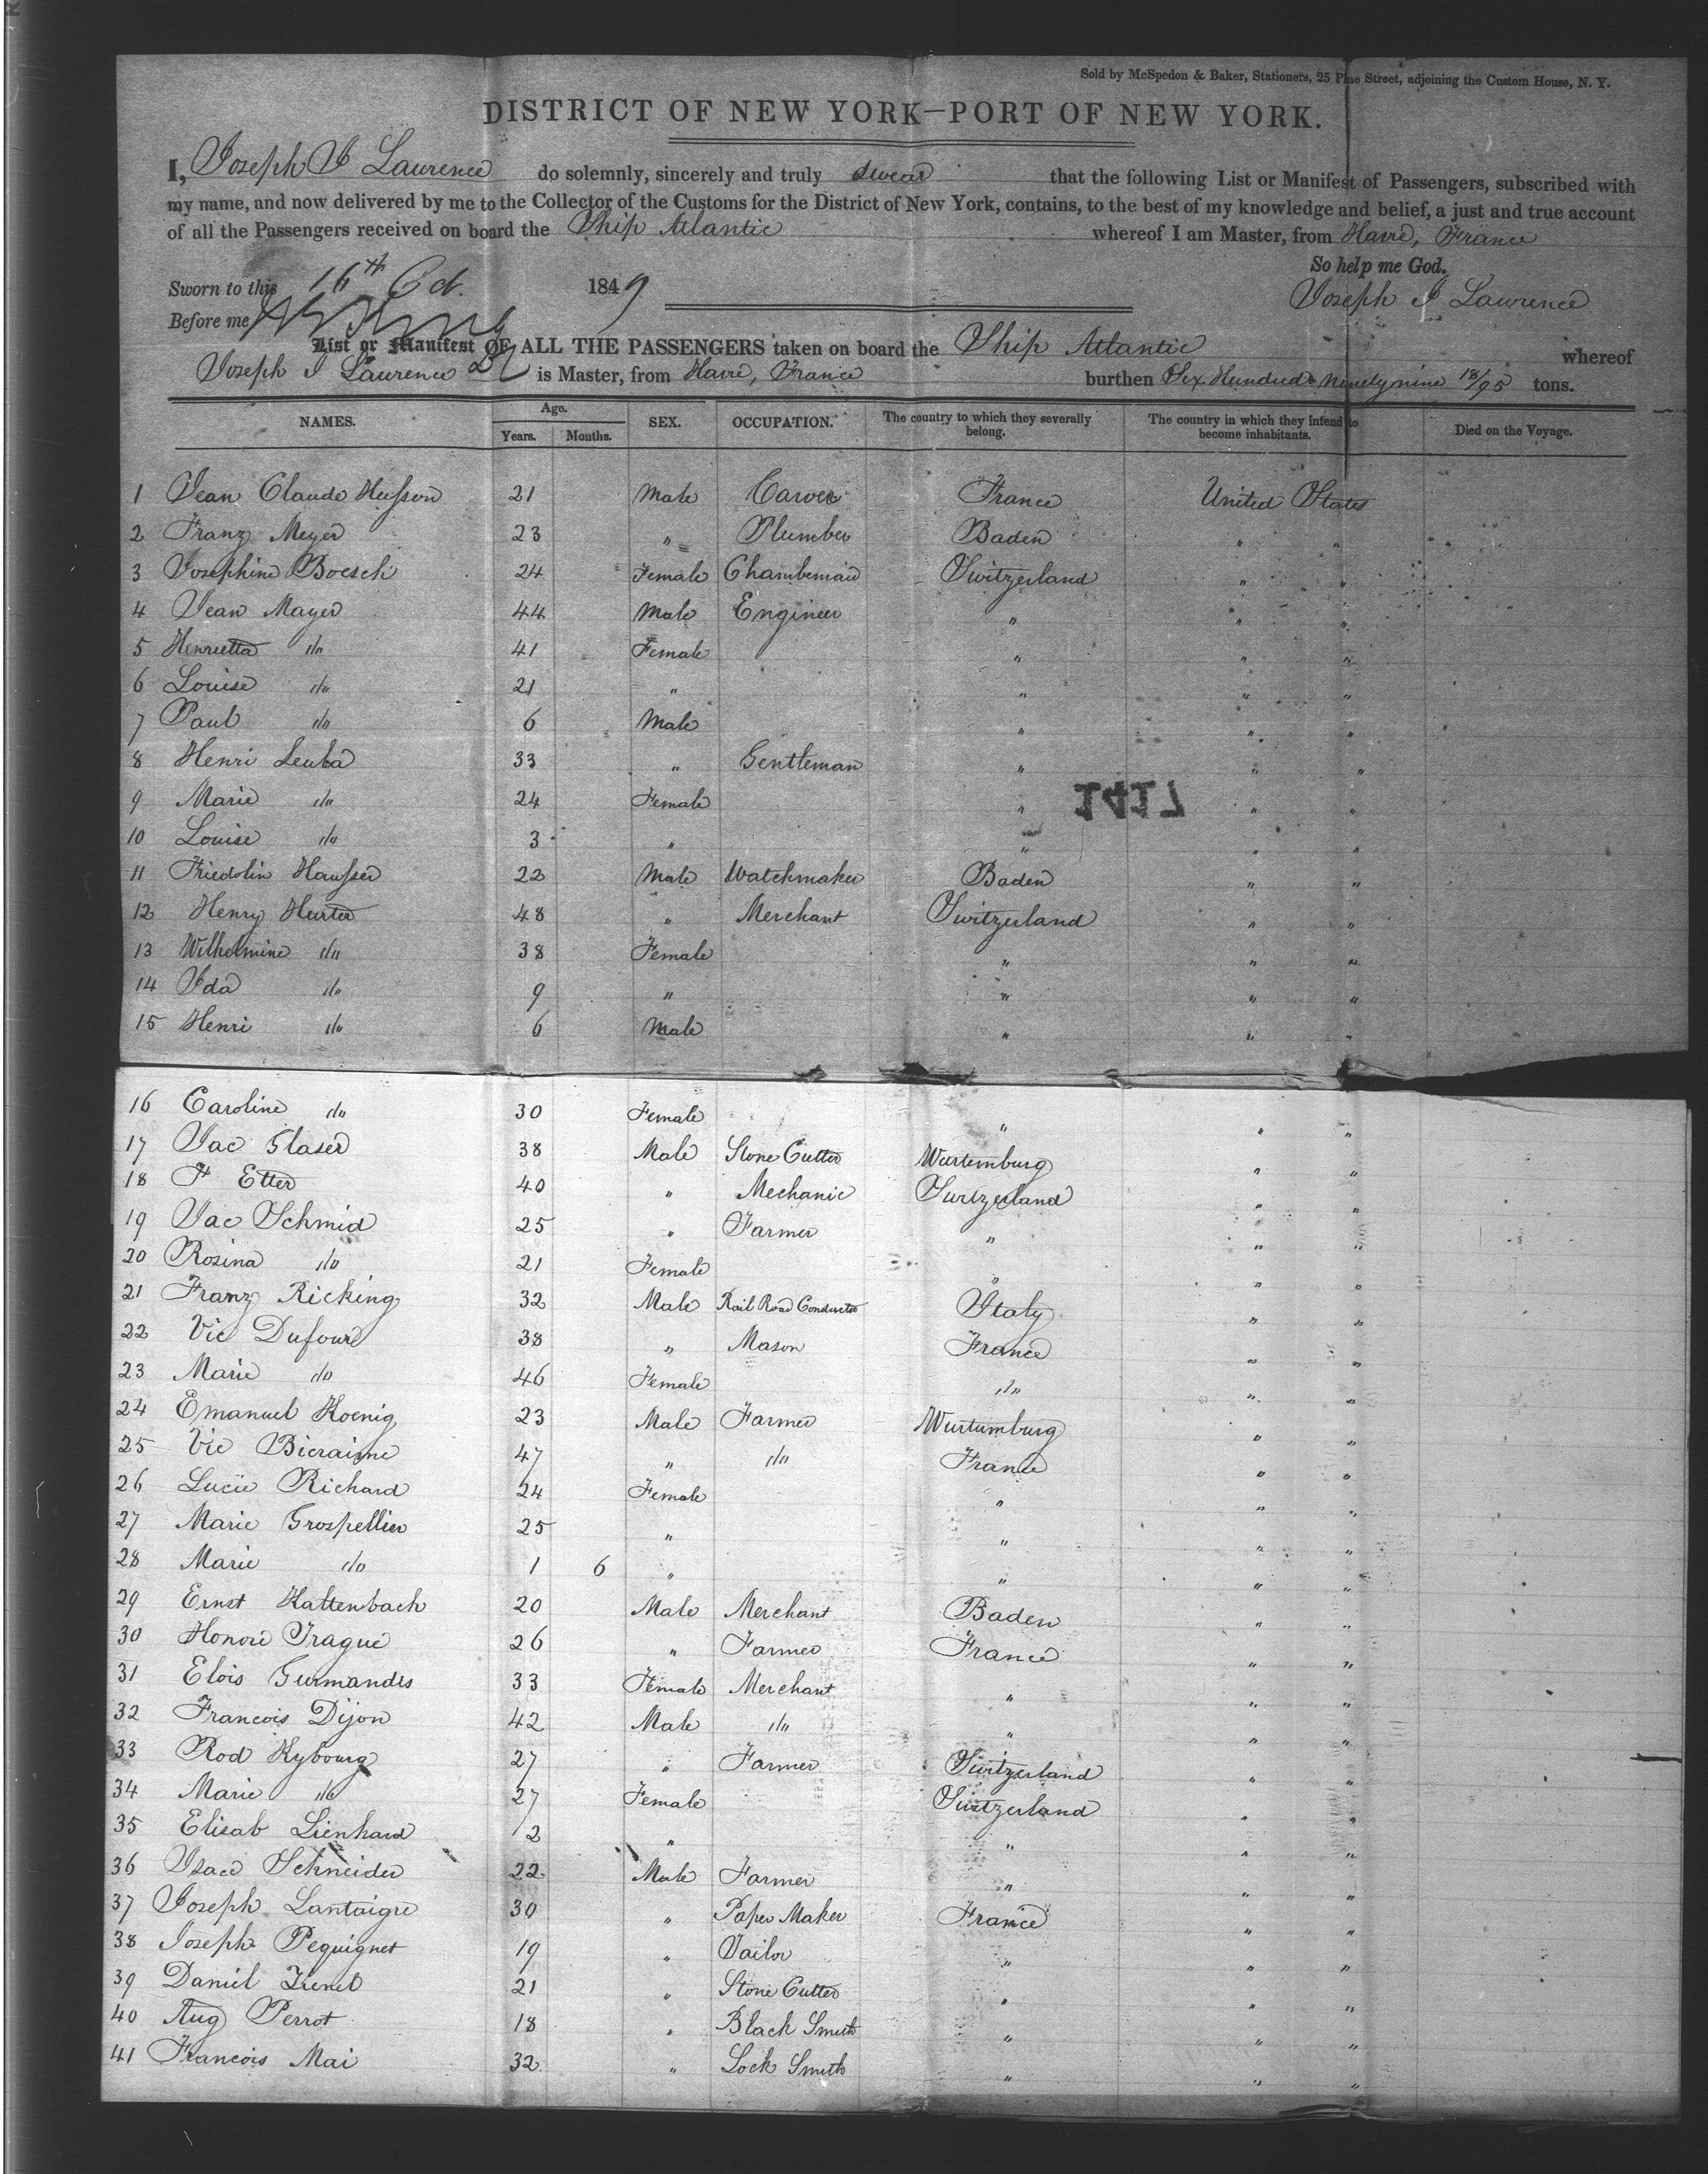 Sold by McSpedon & Baker, Stationers, 25 Pine Street, adjoining the Custom House, N. Y.
DISTRICT OF NEW YORK—PORT OF NEW YORK.
I, Joseph J Lawrence do solemnly, sincerely and truly swear that the following List or Manifest of Passengers, subscribed with
my name, and now delivered by me to the Collector of the Customs for the District of New York, contains, to the best of my knowledge and belief, a just and true account
of all the Passengers received on board the Ship Atlantic whereof I am Master, from Havre, France
So help me God.
Sworn to this 16th Oct. 1849 Joseph J Lawrence
Before me
List or Manifest OF ALL THE PASSENGERS taken on board the Ship Atlantic whereof
Joseph J Lawrence is Master, from Havre, France burthen Six Hundred Ninety nine 18/95 tons.
NAMES. Age. Years. Months. SEX. OCCUPATION. The country to which they severally belong. The country in which they intend to become inhabitants. Died on the Voyage.
1 Jean Claude Husson 21 Male Carver France United States
2 Franz Meyer 23 " Plumber Baden " "
3 Josephine Boesch 24 Female Chambermaid Switzerland " "
4 Jean Mayer 44 Male Engineer " " "
5 Henrietta do 41 Female " " "
6 Louise do 21 " " " "
7 Paul do 6 Male " " "
8 Henri Leuba 33 " Gentleman " " "
9 Marie do 24 Female " " "
1417
10 Louise do 3 " " " "
11 Friedolin Hausser 22 Male Watchmaker Baden " "
12 Henry Hurter 48 " Merchant Switzerland " "
13 Wilhelmine do 38 Female " " "
14 Ida do 9 " " " "
15 Henri do 6 Male " " "
16 Caroline do 30 Female " " "
17 Jac Glaser 38 Male Stone Cutter Wurtemburg " "
18 F Etter 40 " Mechanic Switzerland " "
19 Jac Schmid 25 " Farmer " " "
20 Rosina do 21 Female " " "
21 Franz Ricking 32 Male Rail Road Conductor Italy " "
22 Vic Dufour 38 " Mason France " "
23 Marie do 46 Female do " "
24 Emanuel Koenig 23 Male Farmer Wurtumburg " "
25 Vic Bieraime 47 " do France " "
26 Lucie Richard 24 Female " " "
27 Marie Grospellier 25 " " " "
28 Marie do 1 6 " " " "
29 Ernst Kattenbach 20 Male Merchant Baden " "
30 Honoré Trague 26 " Farmer France " "
31 Elois Gurmandes 33 Female Merchant " " "
32 Francois Dijon 42 Male do " " "
33 Rod Kybourg 27 " Farmer Switzerland " "
34 Marie do 27 Female Switzerland " "
35 Elisab Lienhard 2 " " " "
36 Isaac Schneider 22 Male Farmer " " "
37 Joseph Lantaigre 30 " Paper Maker France " "
38 Joseph Pequignet 19 " Tailor " " "
39 Daniel 21 " Stone Cutter " " "
40 Aug Perrot 18 " Black Smith " " "
41 Francois Mai 32 " Lock Smith " " "